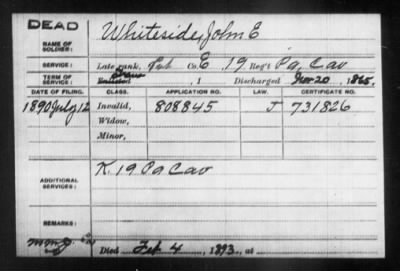 DEAD
NAME OF SOLDIER: Whiteside, John E
SERVICE: Late rank, Pvt Co. E, 19 Reg't Pa, Cav
TERM OF SERVICE: Enlisted , 1 Discharged Nov 20, 1865.
DATE OF FILING. CLASS. APPLICATION NO. LAW. CERTIFICATE NO.
1890 July 12 Invalid, 808845 J 731826
Widow,
Minor,
ADDITIONAL SERVICES: K. 19 Pa Cav
REMARKS:
Died Feb 4, 1893, at